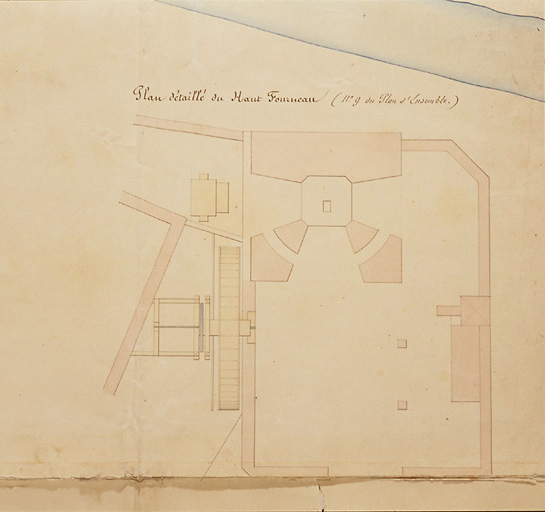 Plan détaillé du Haut Fourneau (N° 9 du Plan d'Ensemble.)